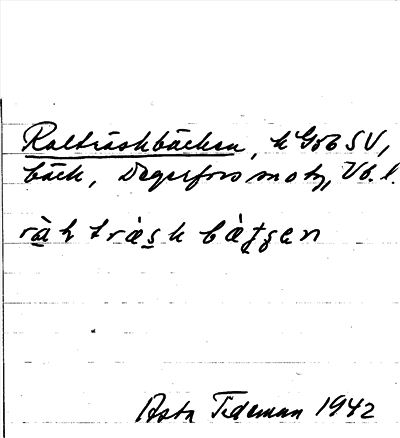 Ralträskbäcken, k Göb SV,
bäck, Degerfors sn o tg, Vb. l.
ràḷ trä̀sk bä̀tsen
Asta Tideman 1942